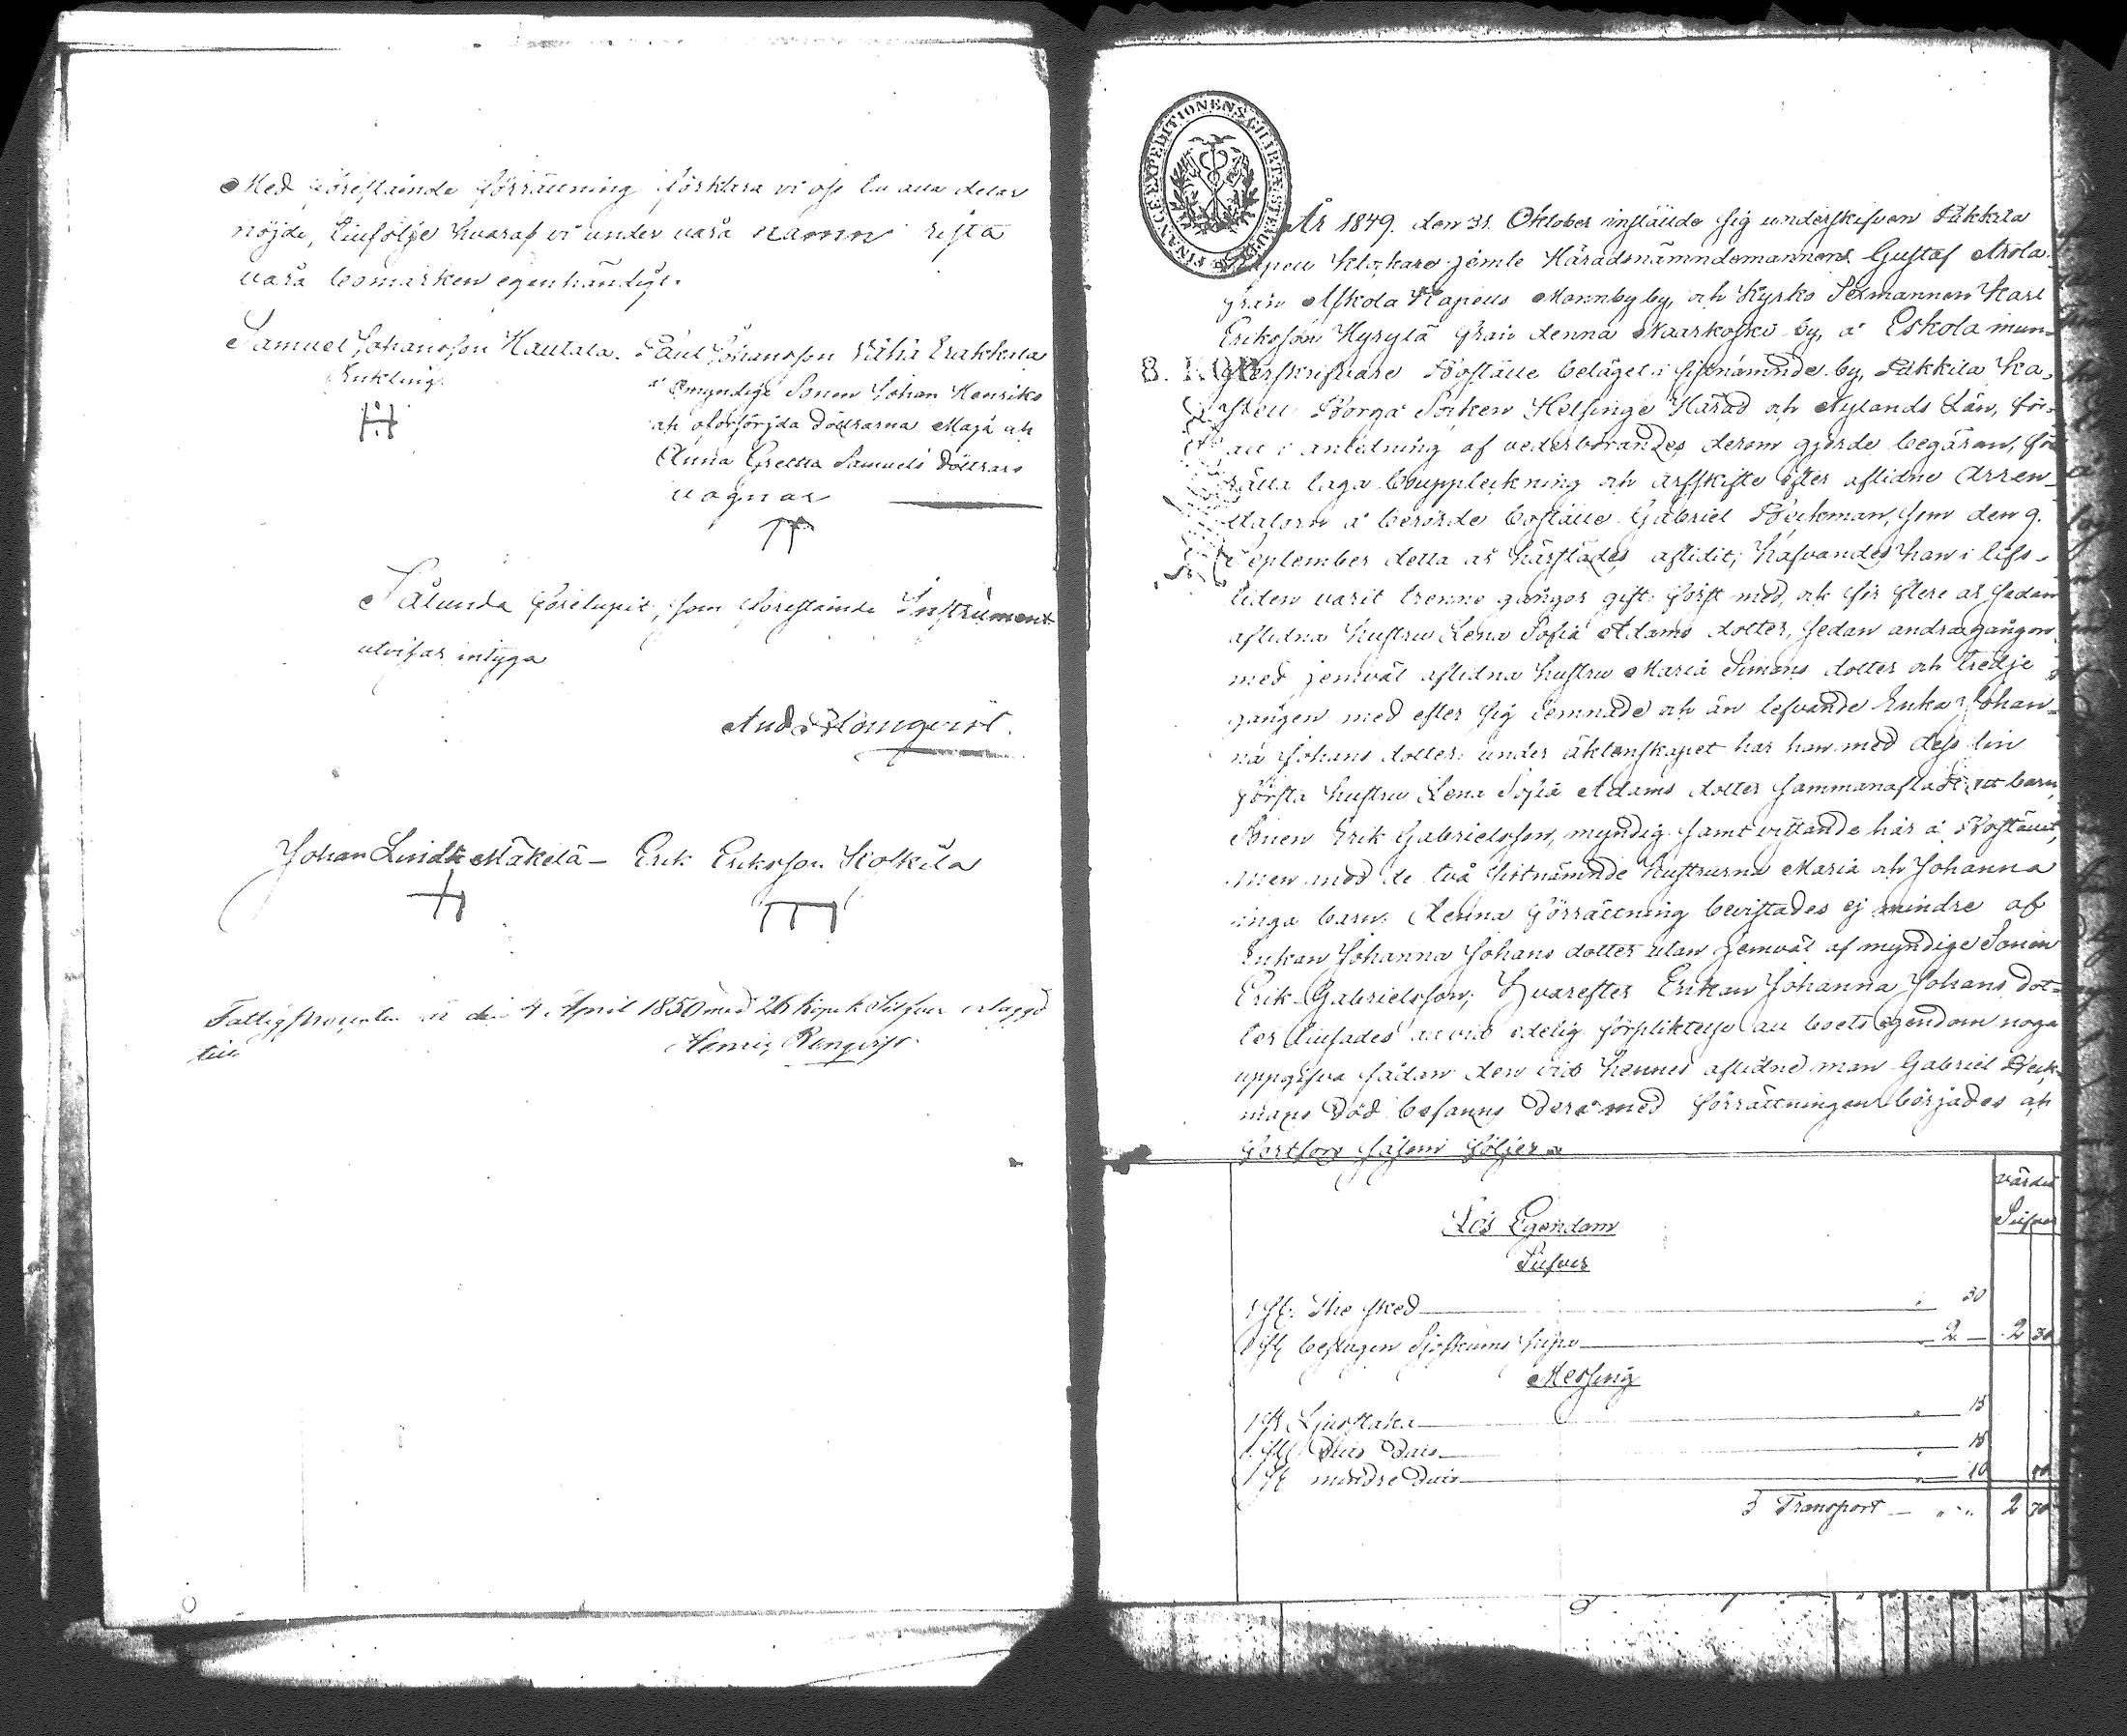 Med förestående förrättning förklara vi oss till alla delar
nöjde, tillfölje hvaraf vi under våra namn rista
våra bomärken egenhändigt.
Samuel Johansson Hautala.
Enkling.
Paul Johansson Vähä Erakkila
Omyndige Sonen Johan Henriks
och oförsörjda döttrarna Maja och
Anna Gretta Samuels döttrars
vagnar
Sålunda förelupit, som förestående Instrument
utvisar intyga
And Blomqvist.
Johan Lindh Mäkelä – Erik Eriksson Kolkila
Fattigprocenten är den 4 April 1850 med 26 kopek Silfver erlagd
till
Henric Renqvist.
FINANCE EXPEDITIONENS CHARTÆ
År 1849. den 31. Oktober instälde sig underskrifven Päkkila
Kapell Klockare jemte Häradsnämndemannen Gustaf Arola
från Askola Kapells Monnby by, och Kyrko Sexmannen Karl
Eriksson Hyrylä från denna Naarkoski by, å Eskola mun-
8. KOP.
sterskrifvare Boställe beläget i sistnämnde by, Päkkila Ka-
pell Borgå Socken Helsinge Härad och Nylands Län, för
att i anledning af vederbörandes derom gjorde begäran, för
rätta laga bouppteckning och arfskifte efter aflidne Arren-
datorn å berörde boställe Gabriel Beckman, som den 9.
September detta år härstädes aflidit; hafvandes han i lifs-
tiden varit trenne gånger gift. först med, och för flere år sedan
aflidna hustru Lena Sofia Adams dotter, sedan andra gången
med jemväl aflidna hustru Maria Simons dotter och tredje
gången med efter sig lemnade och än lefvande Enka Johan-
na Johans dotter: under äktenskapet har han med dess sin
första hustru Lena Sofia Adams dotter sammanaflat ett barn,
Sonen Erik Gabrielsson, myndig samt vistande här å Bostället,
men med de två sistnämnde hustrurna Maria och Johanna
inga barn. Denna förrättning bevistades ej mindre af
Enkan Johanna Johans dotter utan jemväl af myndige Sonen
Erik Gabrielsson; Hvarefter Enkan Johanna Johans dot-
ter tillsades att vid edelig förpliktelse all boets egendom noga
uppgifva sådan den vid hennes aflidne man Gabriel Beck-
mans död befanns dermed förrättningen börjades och
fortfors såsom följer
värde
Silfver
Lös Egendom
Silfver
1 st. The sked 30
1 st beslagen Sjöskums pipa 2 – 2 30
Messing
1 st Ljusstaka 15
1 st 15
1 st mindre 10 40
Transport 2 70